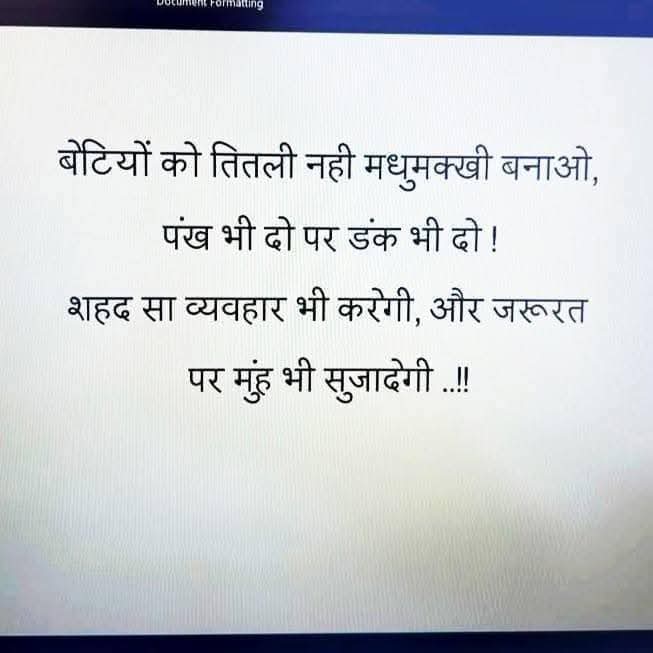 Document Formatting
बेटियों को तितली नही मधुमक्खी बनाओ,
पंख भी दो पर डंक भी दो !
शहद सा व्यवहार भी करेगी, और जरूरत
पर मुंह भी सुजादेगी ..!!